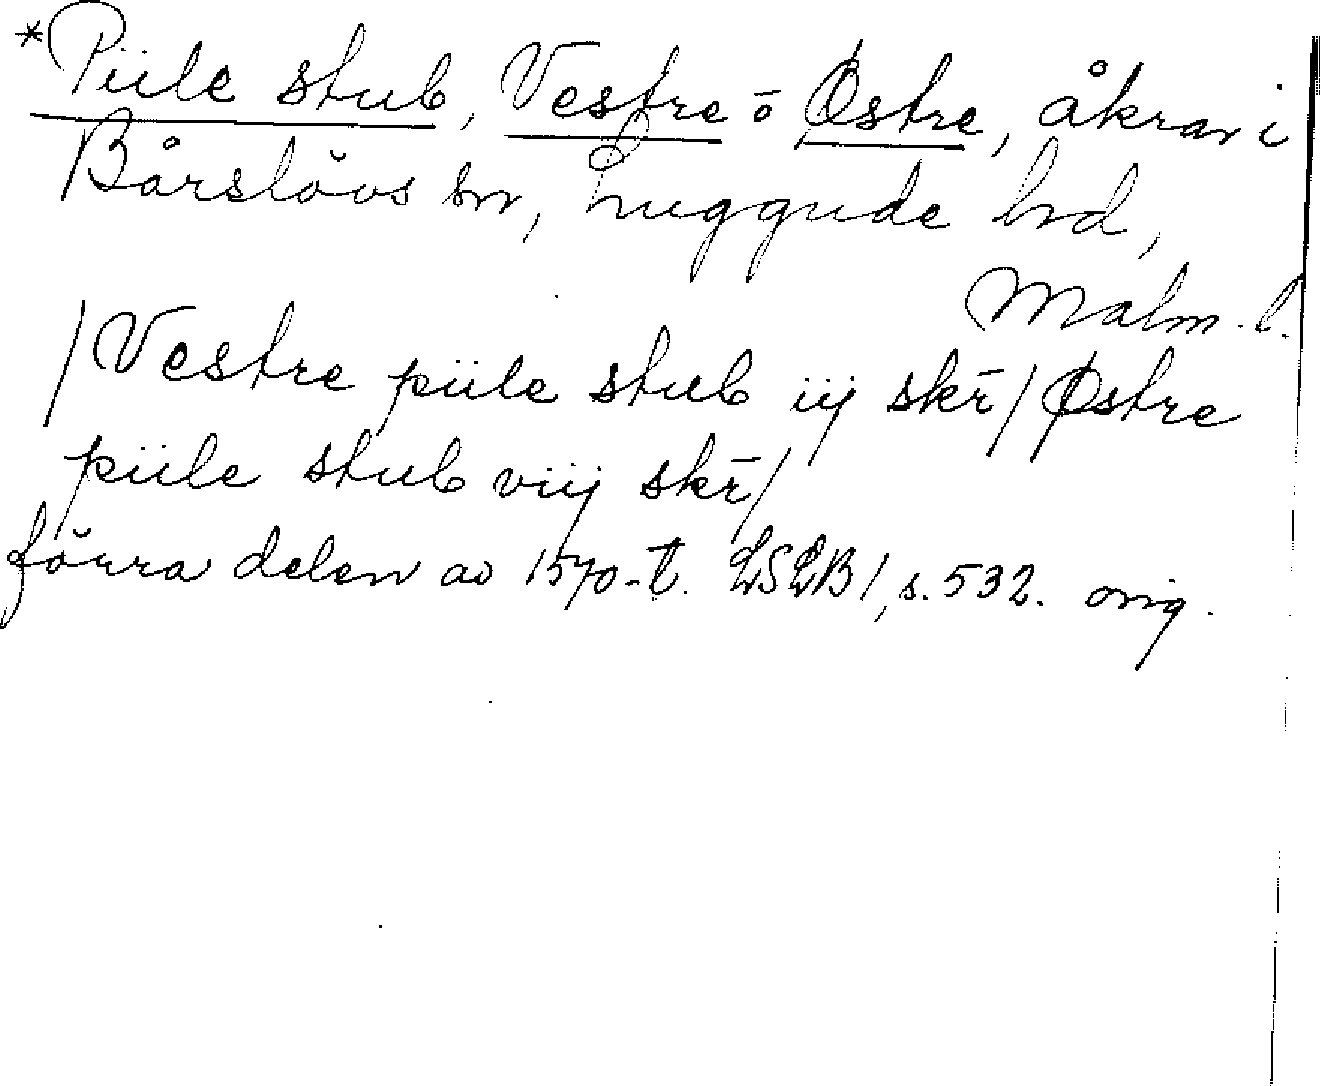 *Piile stub, Vestre ō Østre, åkrar i
Bårslövs sn, Luggude hd,
Malm. l.
/Vestre piile stub iij skr̄/Østre
piile stub viij skr̄/
förra delen av 1570-t. LSLB 1, s. 532. orig.